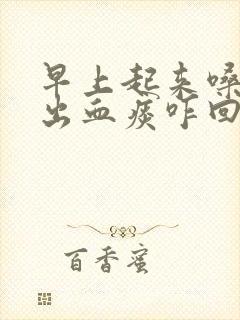 早上起来嗓
出血痰咋回
百香蜜